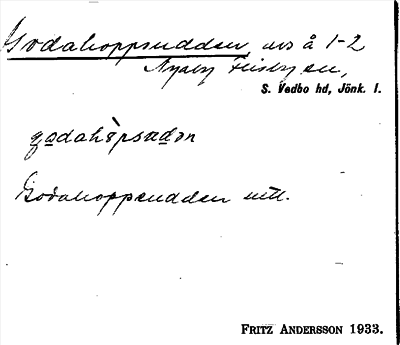 Godahoppsudden, uvs å 1-2
Nyaby Frinnaryd sn,
S. Vedbo hd, Jönk. l.
godahòpsudən
Godahoppsudden utt.
FRITZ ANDERSSON 1933.